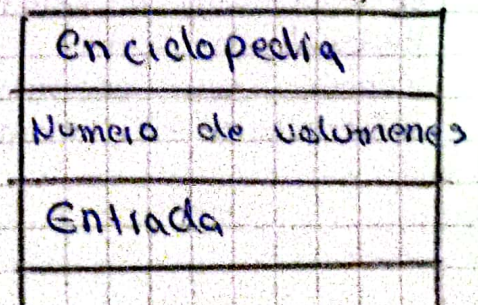 Enciclopedia
Numero de volumenes
Entrada